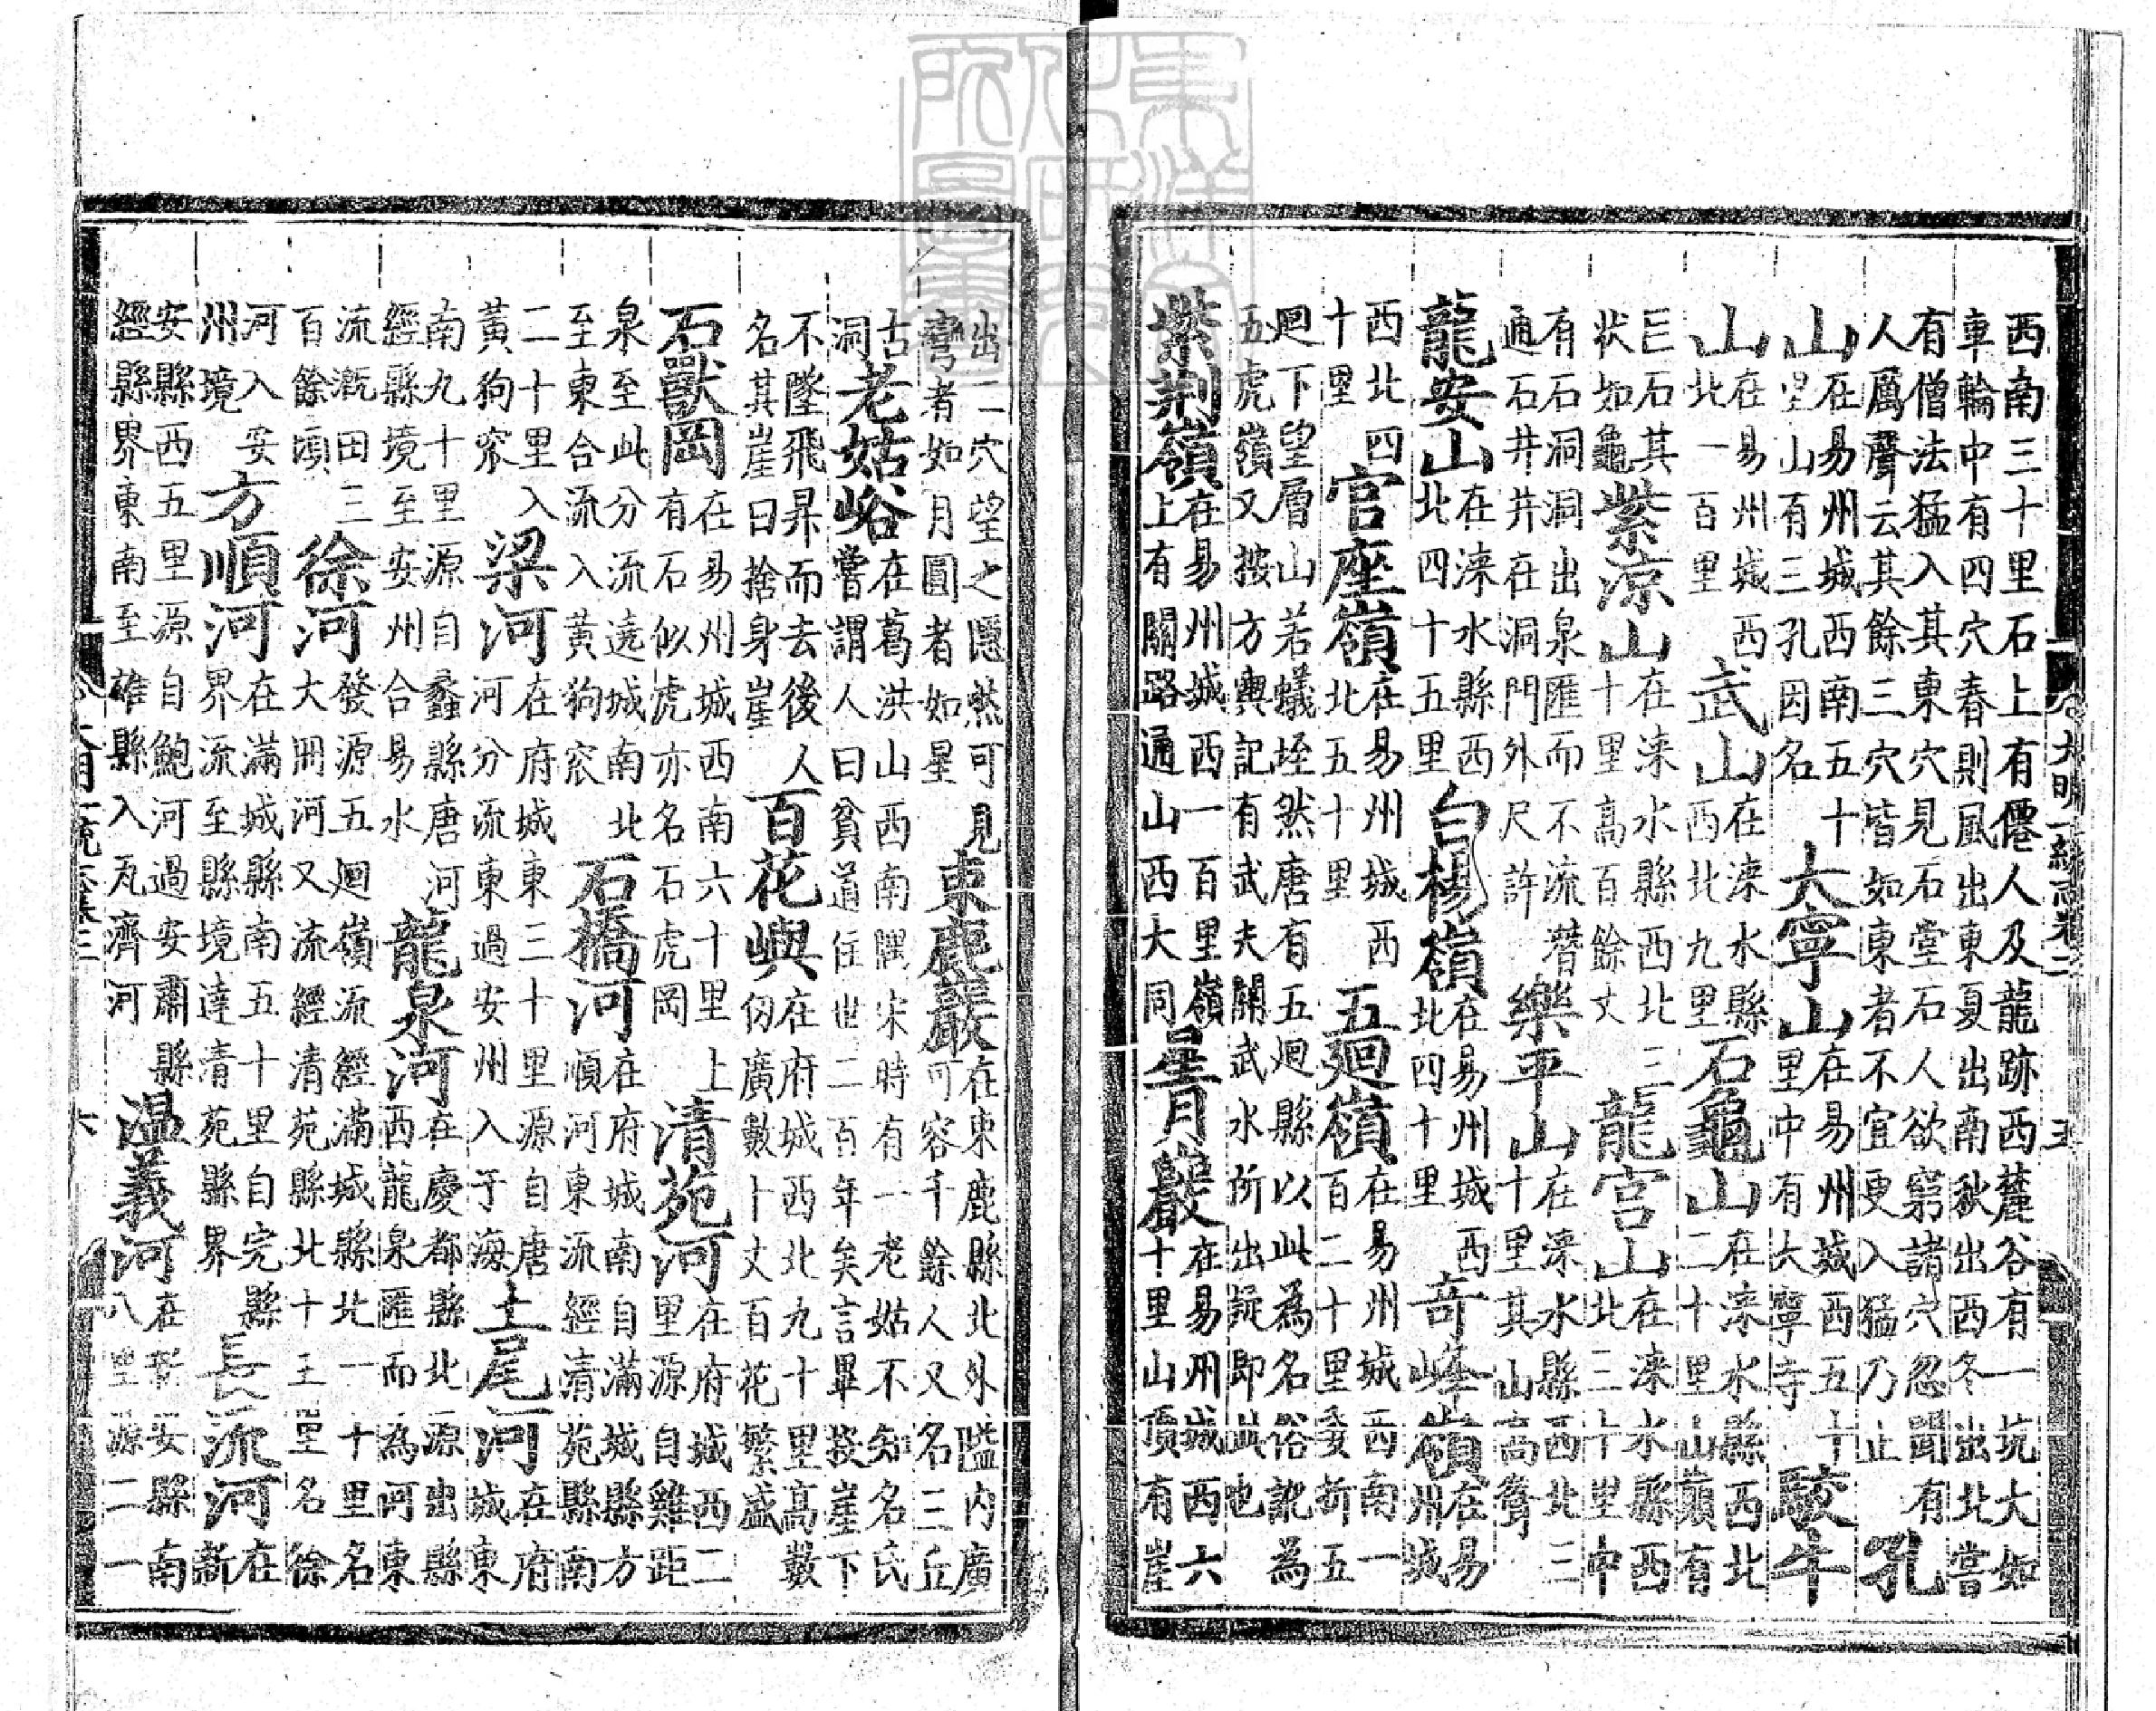 西南三十里石上有僊人及龍跡西麓谷有一坑大如車輪中有四穴春則風出東夏出南秋出西冬出北嘗
有僧法猛入其東穴見石堂石人欲窮諸穴忽聞有人厲聲云其餘三穴皆如東者不宜更入猛乃止 孔
山在易州城西南五十里山有三孔因名 大寧山在易州城西五十里中有大寧寺 駮牛
山在易州城西北一百里 武山在淶水縣西北九里 石龜山在淶水縣西北二十里山巔有
巨石其狀如龜 紫涼山在淶水縣西北三十里高百餘丈 龍宮山在淶水縣西北三十里中
有石洞洞出泉匯而不流潛通石井井在洞門外尺許 樂平山在淶水縣西北三十里其山高聳
龍安山在淶水縣西北四十五里 白楊嶺在易州城西北四十里 奇峰嶺在易州城
西北四十里 官座嶺在易州城西北五十里 五廻嶺在易州城西南一百二十里委折五
廻下望層山若蟻垤然唐有五廻縣以此為名俗訛為五虎嶺又按方輿記有武夫關武水所出疑即此也
紫荆嶺在易州城西一百里嶺上有關路通山西大同 星月巖在易州城西六十里山頂有崖
大明一統志卷二 五
出二穴望之隱然可見彎者如月圓者如星 束鹿巖在束鹿縣北外隘内廣可容千餘人又名三丘
古洞 老姑峪在葛洪山西南隅宋時有一老姑不知名氏嘗謂人曰貧道住世二百年矣言畢投崖下
不墜飛昇而去後人名其崖曰捨身崖 百花嶼在府城西北九十里高數仞廣數十丈百花繁盛
石獸岡在易州城西南六十里上有石似虎亦名石虎岡 清苑河在府城西二里源自雞距
泉至此分流遶城南北至東合流入黃狗窊 石橋河在府城南自滿城縣方順河東流經清苑縣南
二十里入黃狗窊 梁河在府城東三十里源自唐河分流東過安州入于海 土尾河在府城東
南九十里源自蠡縣唐河經縣境至安州合易水 龍泉河在慶都縣北源出縣西龍泉匯而為河東
流溉田三百餘頃 徐河發源五廻嶺流經滿城縣北一十里名大冊河又流經清苑縣北十五里名徐
河入安州境 方順河在滿城縣南五十里自完縣界流至縣境達清苑縣界 長流河在新
安縣西五里源自鮑河過安肅縣經縣界東南至雄縣入瓦濟河 温義河在安縣南八里源二一
六